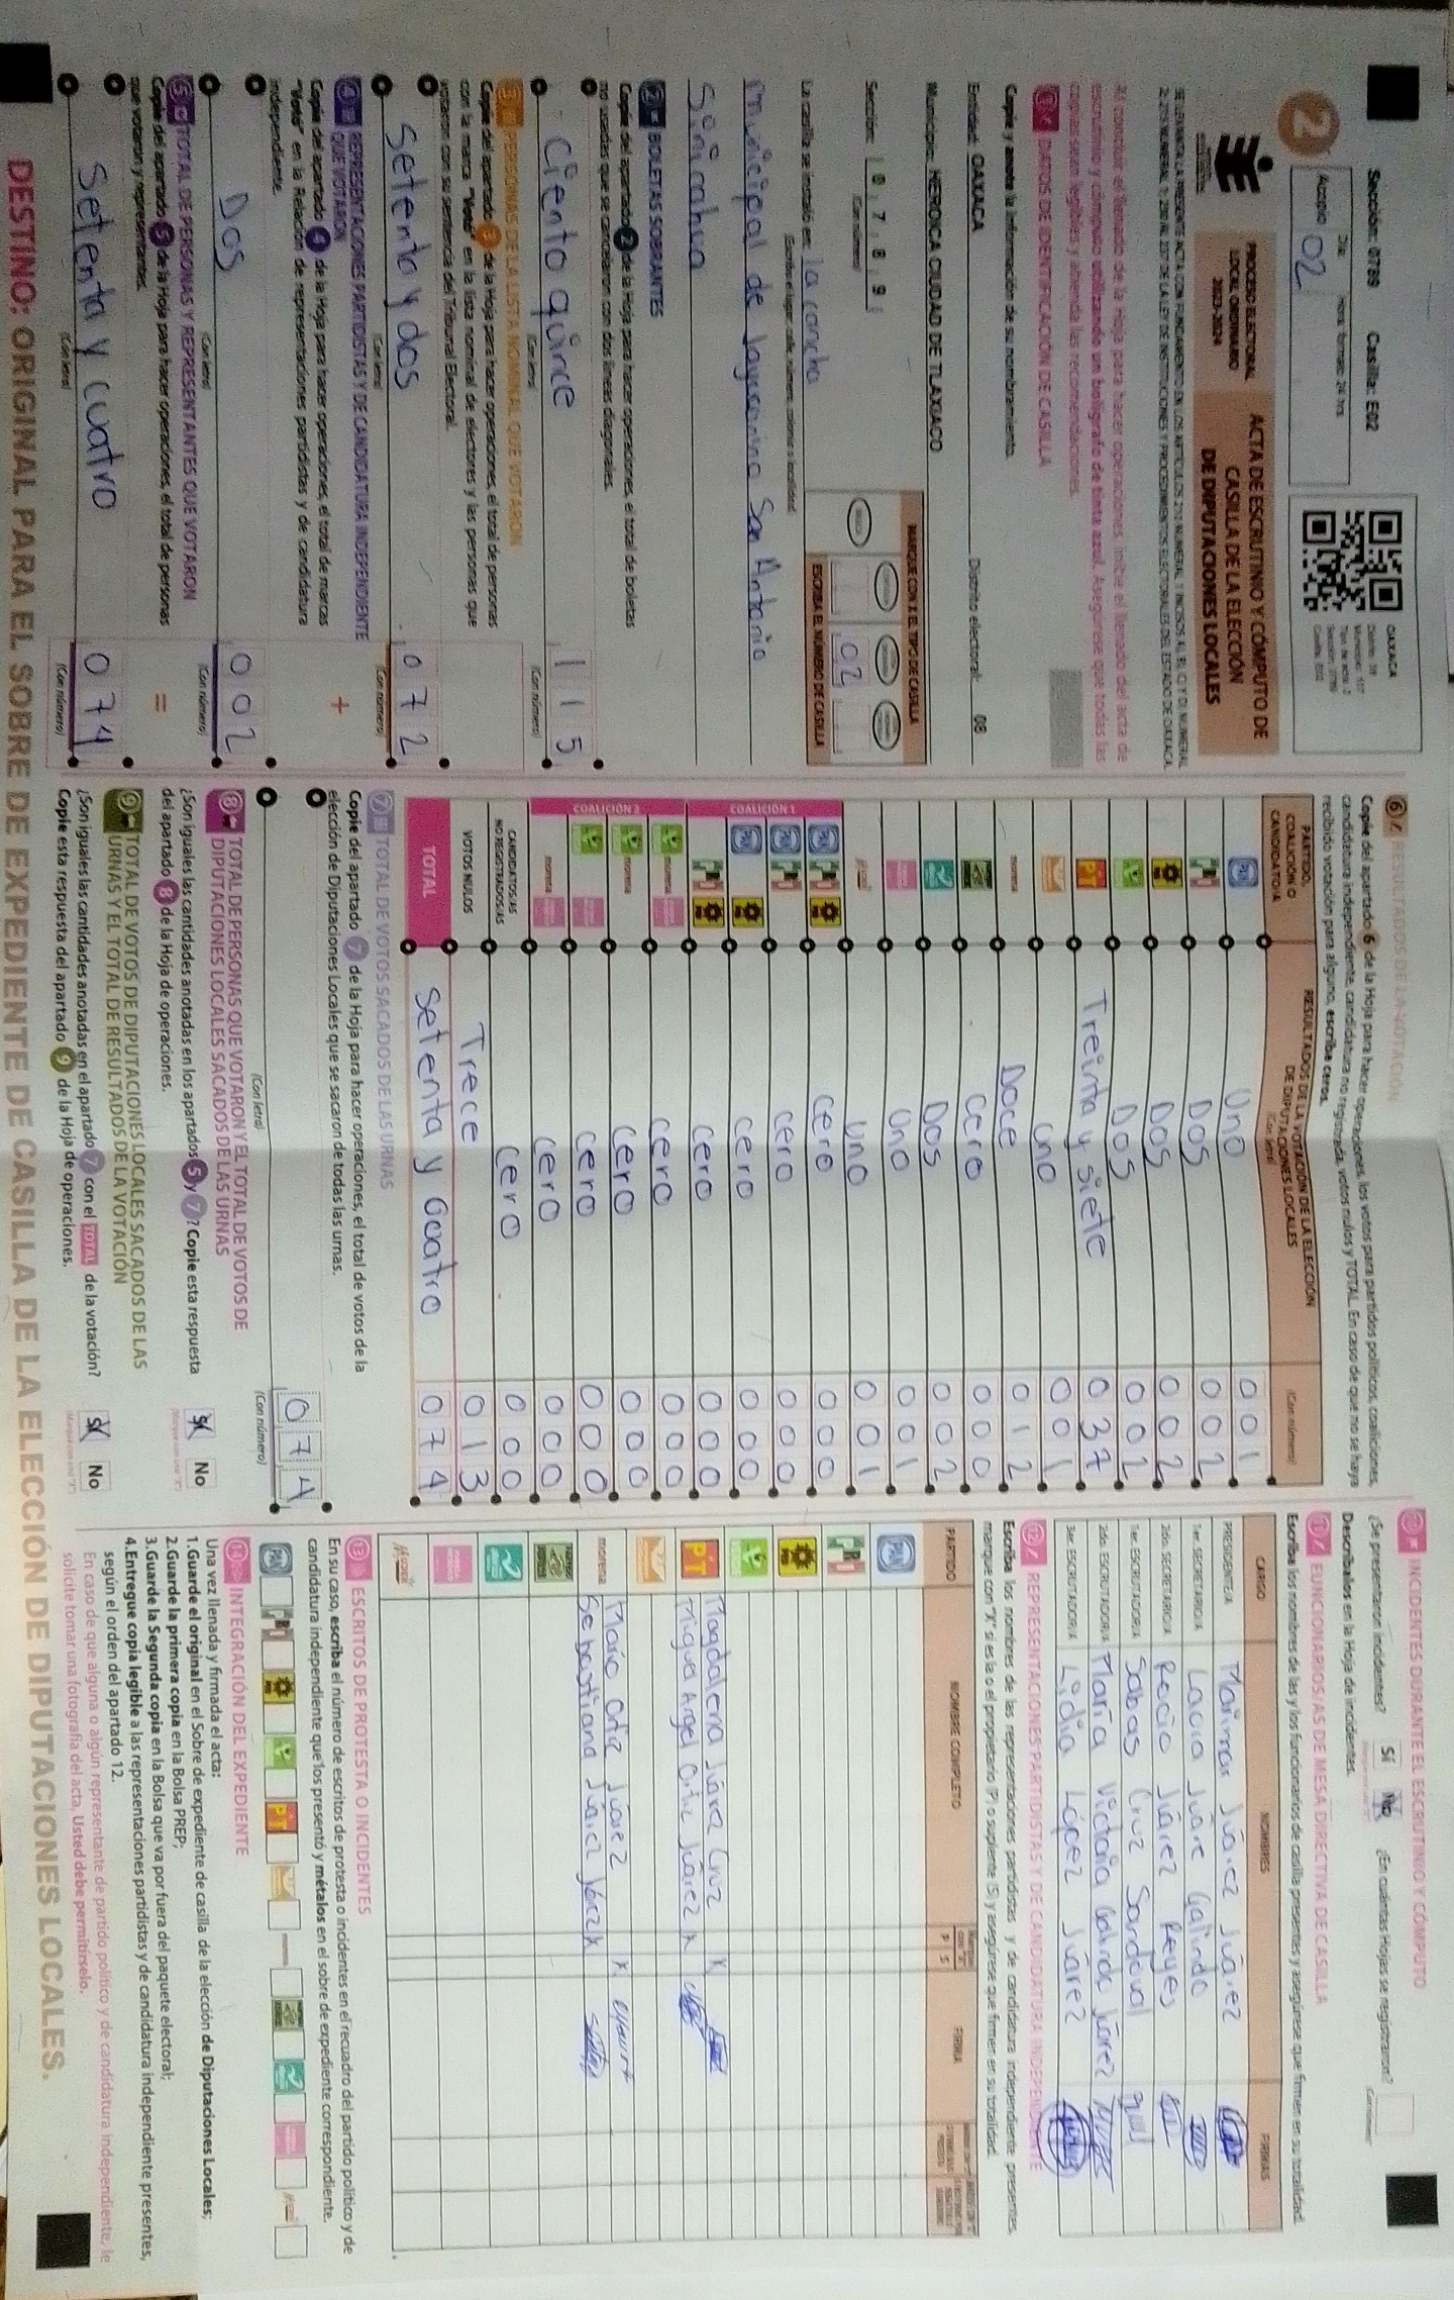 Sección: 0789 Casilla: E02
Día: Hora: formato 24 hrs.
Acopio 02
2
OAXACA
PROCESO ELECTORAL
LOCAL ORDINARIO
2023-2024
ACTA DE ESCRUTINIO Y CÓMPUTO DE
CASILLA DE LA ELECCIÓN
DE DIPUTACIONES LOCALES
Al concluir el llenado de la Hoja para hacer operaciones, inicie el llenado del acta de
escrutinio y cómputo utilizando un bolígrafo de tinta azul. Asegúrese que todas las
copias sean legibles y atienda las recomendaciones.
1 DATOS DE IDENTIFICACIÓN DE CASILLA
Copie y anote la información de su nombramiento.
Entidad: OAXACA Distrito electoral: 08
Municipio: HEROICA CIUDAD DE TLAXIACO
Sección: 0 7 8 9
(Con número)
MARQUE CON X EL TIPO DE CASILLA
02
ESCRIBA EL NÚMERO DE CASILLA
La casilla se instaló en: la cancha
(Escriba el lugar: calle, número, colonia o localidad)
municipal de San Antonio
Sinicahua
2 BOLETAS SOBRANTES
Copie del apartado 2 de la Hoja para hacer operaciones, el total de boletas
no usadas que se cancelaron con dos líneas diagonales.
Ciento quince 1 1 5
(Con letra) (Con número)
3 PERSONAS DE LA LISTA NOMINAL QUE VOTARON
Copie del apartado 3 de la Hoja para hacer operaciones, el total de personas
con la marca "Votó" en la lista nominal de electores y las personas que
votaron con su sentencia del Tribunal Electoral.
Setenta y dos 0 7 2
(Con letra) (Con número)
4 REPRESENTACIONES PARTIDISTAS Y DE CANDIDATURA INDEPENDIENTE
QUE VOTARON +
Copie del apartado 4 de la Hoja para hacer operaciones, el total de marcas
"Votó" en la Relación de representaciones partidistas y de candidatura
independiente.
Dos 0 0 2
(Con letra) (Con número)
5 TOTAL DE PERSONAS Y REPRESENTANTES QUE VOTARON =
Copie del apartado 5 de la Hoja para hacer operaciones, el total de personas
que votaron y representantes.
Setenta y cuatro 0 7 4
(Con letra) (Con número)
6 RESULTADOS DE LA VOTACIÓN
Copie del apartado 6 de la Hoja para hacer operaciones, los votos para partidos políticos, coaliciones,
candidatura independiente, candidatura no registrada, votos nulos y TOTAL. En caso de que no se haya
recibido votación para alguno, escriba ceros.
PARTIDO,
COALICIÓN O
CANDIDATO/A
RESULTADOS DE LA VOTACIÓN DE LA ELECCIÓN
DE DIPUTACIONES LOCALES
(Con letra) (Con número)
PAN Uno 0 0 1
PRI Dos 0 0 2
PRD Dos 0 0 2
Dos 0 0 2
PT Treinta y siete 0 3 7
uno 0 0 1
morena Doce 0 1 2
cero 0 0 0
Dos 0 0 2
Uno 0 0 1
Uno 0 0 1
COALICIÓN 1
PAN PRI PRD cero 0 0 0
PAN PRI cero 0 0 0
PAN PRD cero 0 0 0
PRI PRD cero 0 0 0
COALICIÓN 2
morena cero 0 0 0
morena cero 0 0 0
cero 0 0 0
morena cero 0 0 0
CANDIDATOS/AS
NO REGISTRADOS/AS cero 0 0 0
VOTOS NULOS Trece 0 1 3
TOTAL Setenta y Cuatro 0 7 4
7 TOTAL DE VOTOS SACADOS DE LAS URNAS
Copie del apartado 7 de la Hoja para hacer operaciones, el total de votos de la
elección de Diputaciones Locales que se sacaron de todas las urnas.
0 7 4
(Con letra) (Con número)
8 TOTAL DE PERSONAS QUE VOTARON Y EL TOTAL DE VOTOS DE
DIPUTACIONES LOCALES SACADOS DE LAS URNAS
¿Son iguales las cantidades anotadas en los apartados 5 y 7? Copie esta respuesta
del apartado 8 de la Hoja de operaciones.
Sí No
9 TOTAL DE VOTOS DE DIPUTACIONES LOCALES SACADOS DE LAS
URNAS Y EL TOTAL DE RESULTADOS DE LA VOTACIÓN
¿Son iguales las cantidades anotadas en el apartado 7 con el TOTAL de la votación?
Copie esta respuesta del apartado 9 de la Hoja de operaciones.
Sí No
10 INCIDENTES DURANTE EL ESCRUTINIO Y CÓMPUTO
¿Se presentaron incidentes? Sí No ¿En cuántas Hojas se registraron?
Descríbalos en la Hoja de incidentes.
11 FUNCIONARIOS/AS DE MESA DIRECTIVA DE CASILLA
Escriba los nombres de las y los funcionarios de casilla presentes y asegúrese que firmen en su totalidad.
CARGO NOMBRES FIRMAS
PRESIDENTE/A Juárez Juárez
1er. SECRETARIO/A Galindo
2do. SECRETARIO/A Rocio Juárez Reyes
1er. ESCRUTADOR/A Sabas Cruz Sandoval
2do. ESCRUTADOR/A María Victoria Juárez
3er. ESCRUTADOR/A Lidia López Juárez
12 REPRESENTACIONES PARTIDISTAS Y DE CANDIDATURA INDEPENDIENTE
Escriba los nombres de las representaciones partidistas y de candidatura independiente presentes,
marque con "X" si es la o el propietario (P) o suplente (S) y asegúrese que firmen en su totalidad.
PARTIDO NOMBRE COMPLETO P S FIRMA
PAN
PRI
PRD
Magdalena Juárez Cruz X
PT Miguel Angel Ortiz Juárez X
Mario Ortiz Juarez X
morena Sebastiana X
13 ESCRITOS DE PROTESTA O INCIDENTES
En su caso, escriba el número de escritos de protesta o incidentes en el recuadro del partido político y de
candidatura independiente que los presentó y métalos en el sobre de expediente correspondiente.
PAN PRI PRD PT
14 INTEGRACIÓN DEL EXPEDIENTE
Una vez llenada y firmada el acta:
1. Guarde el original en el Sobre de expediente de casilla de la elección de Diputaciones Locales;
2. Guarde la primera copia en la Bolsa PREP;
3. Guarde la Segunda copia en la Bolsa que va por fuera del paquete electoral;
4. Entregue copia legible a las representaciones partidistas y de candidatura independiente presentes,
según el orden del apartado 12.
En caso de que alguna o algún representante de partido político y de candidatura independiente, le
solicite tomar una fotografía del acta, Usted debe permitírselo.
DESTINO: ORIGINAL PARA EL SOBRE DE EXPEDIENTE DE CASILLA DE LA ELECCIÓN DE DIPUTACIONES LOCALES.